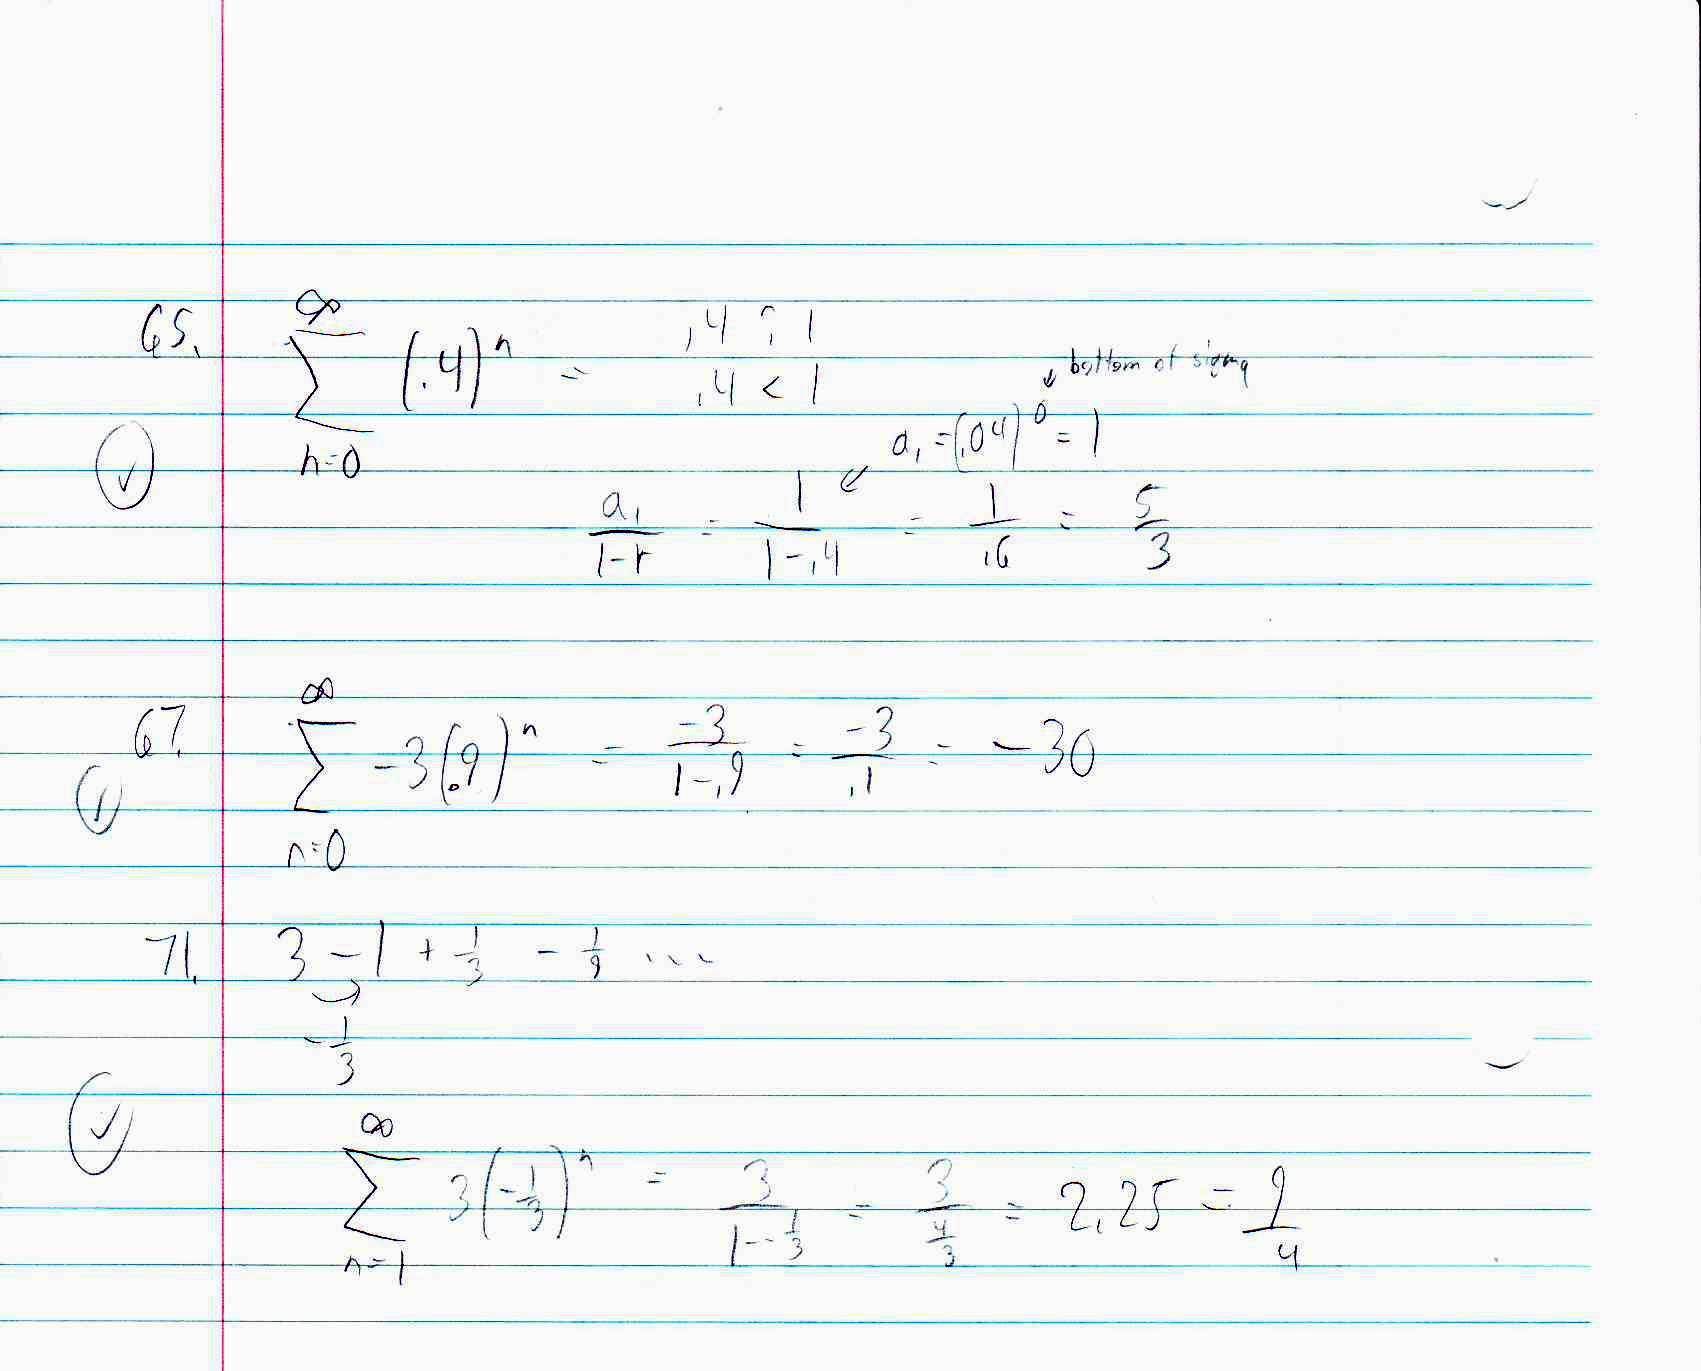 .4 ? 1
65. ∞ ∑ n=0 (.4)^n = .4 < 1
↓ bottom of sigma
a₁ = (.04)^0 = 1
✓ a₁/(1-r) = 1/(1-.4) = 1/.6 = 5/3
67. ∞ ∑ n=0 -3(.9)^n = -3/(1-.9) = -3/.1 = -30
✓
71. 3 - 1 + 1/3 - 1/9 ...
-1/3
✓
∞ ∑ n=1 3(-1/3)^n = 3/(1--1/3) = 3/(4/3) = 2.25 = 9/4